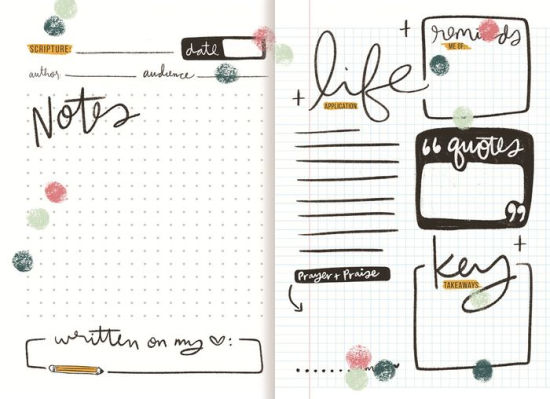 SCRIPTURE: date
author audience
Notes
written on my ♡:
life
APPLICATION
Prayer + Praise
reminds
ME OF:
“ quotes ”
key
TAKEAWAYS